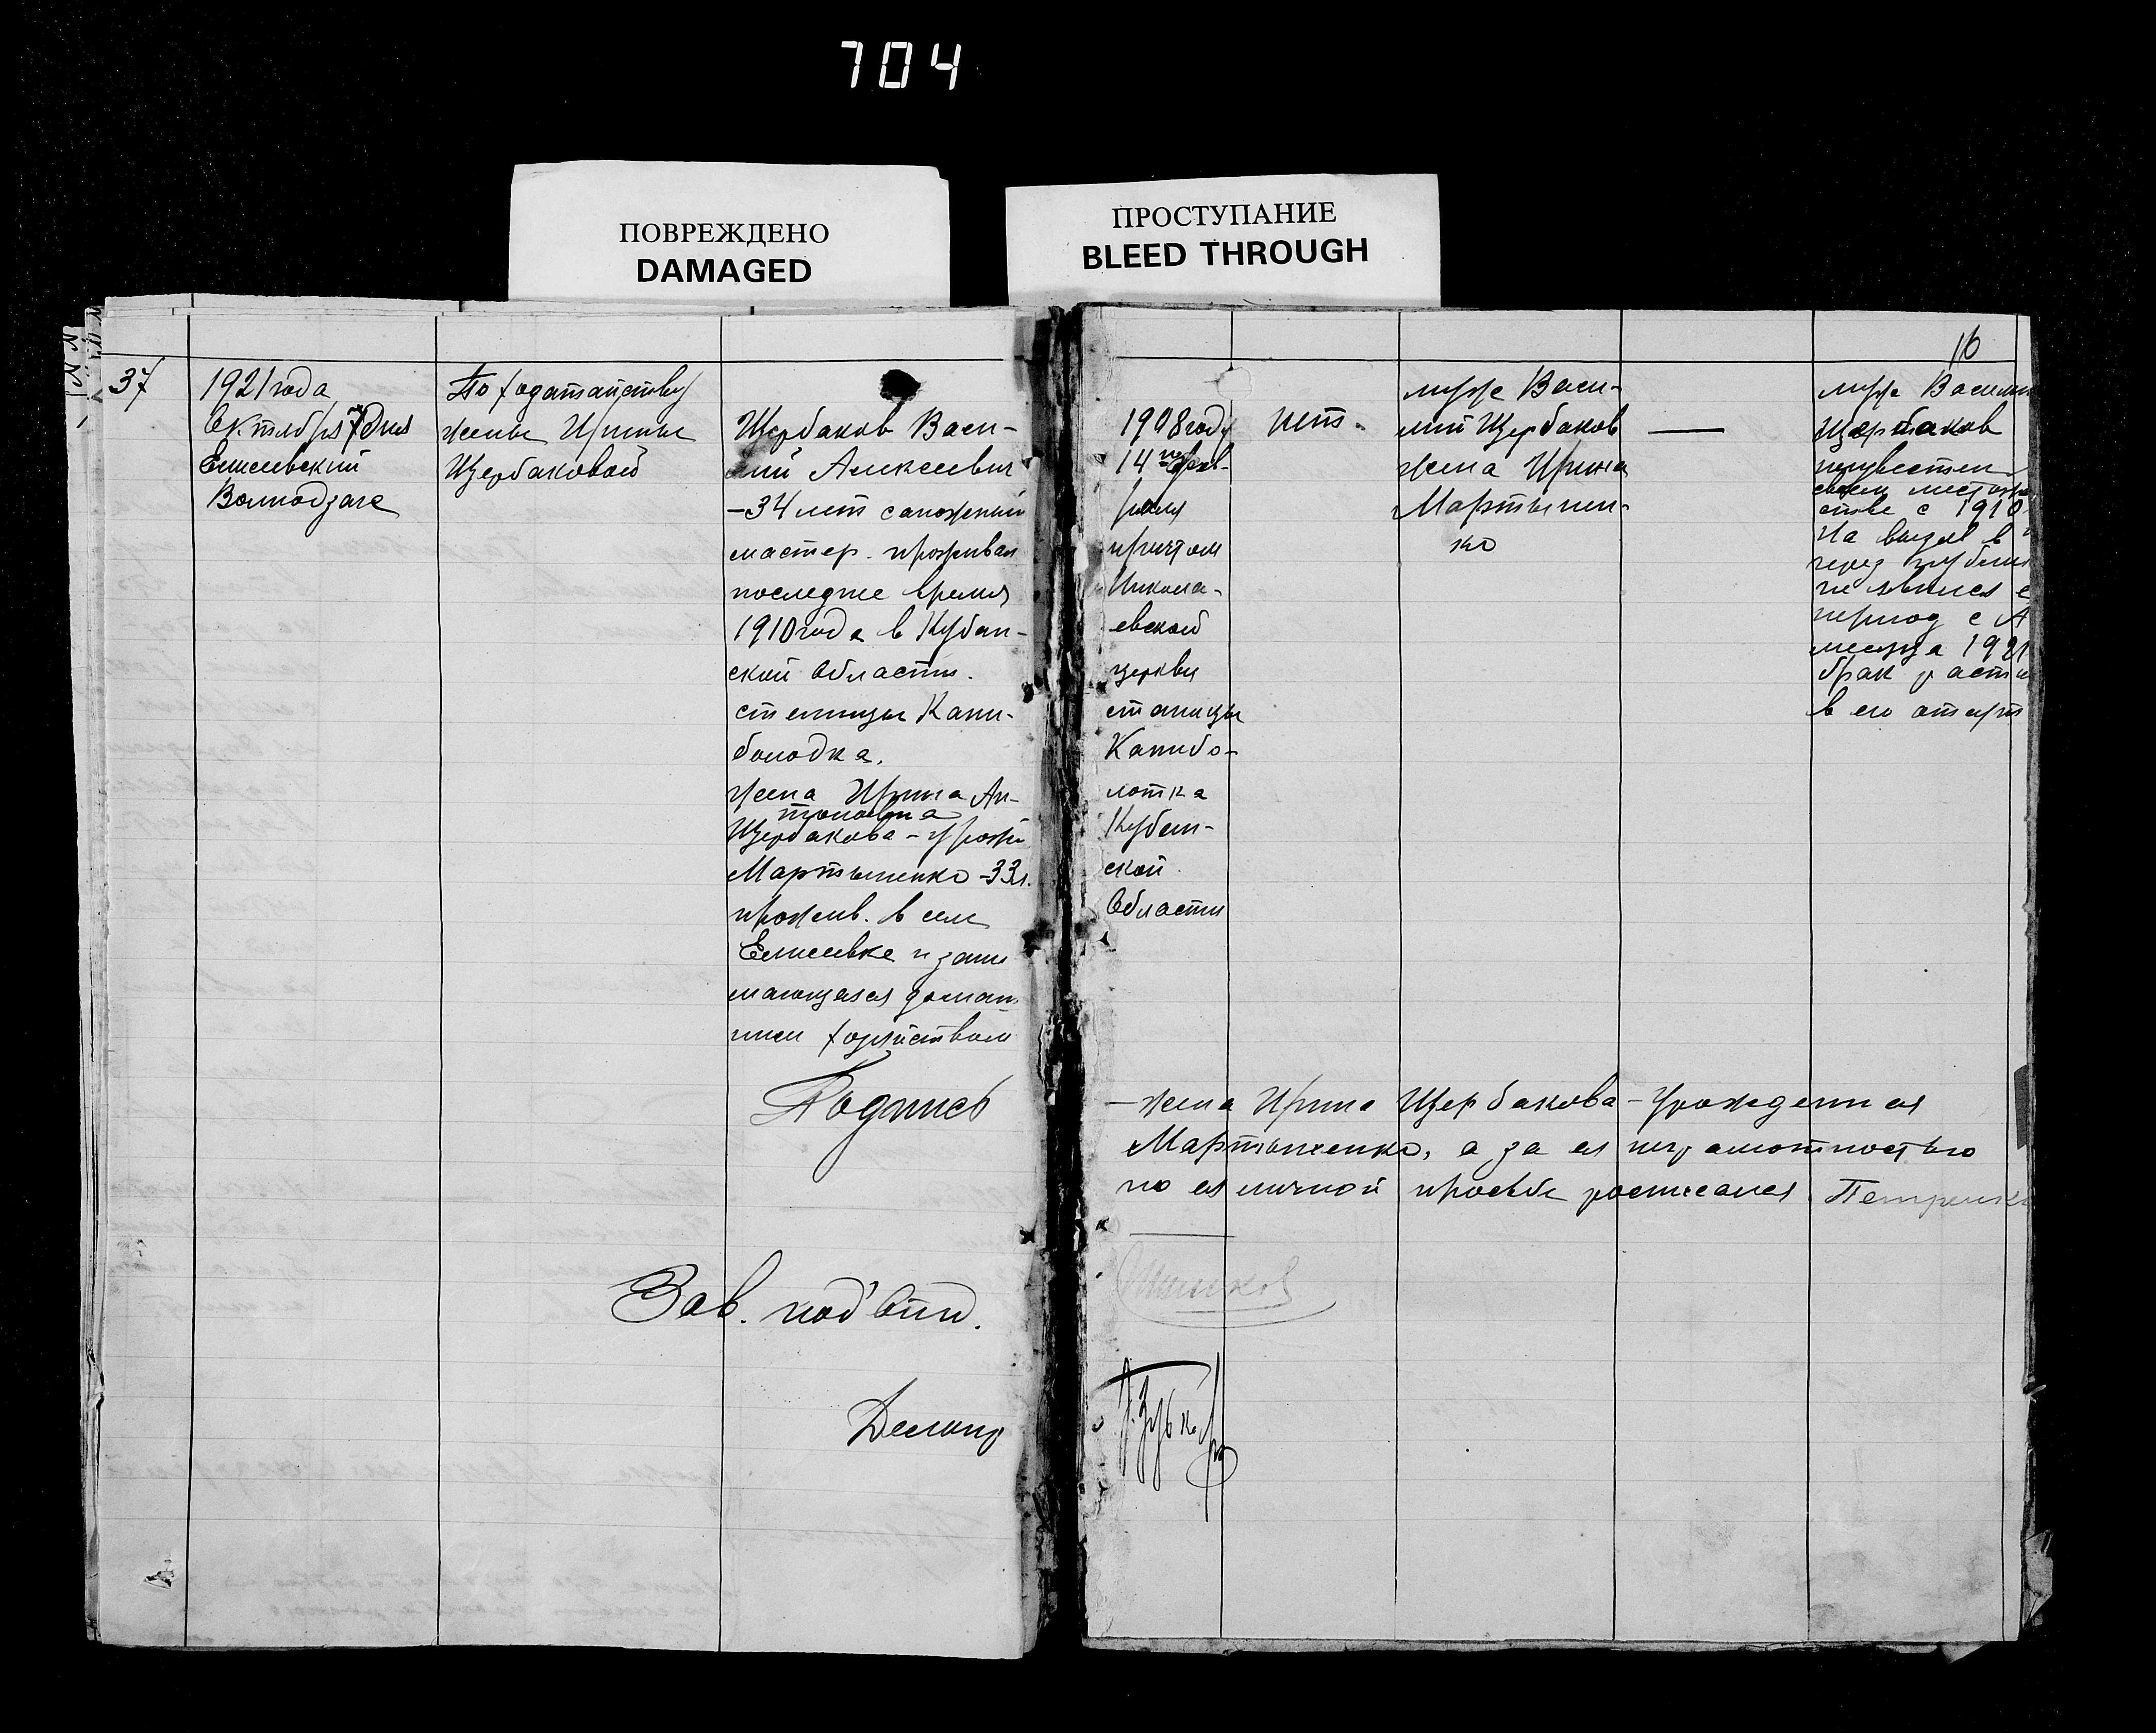 704
ПОВРЕЖДЕНО
DAMAGED
ПРОСТУПАНИЕ
BLEED THROUGH
37
1921 года
Октября 7 дня
Елисеевский
Волподзаге
По ходатайству
жены Ирины
Щербаковой
Щербаков Васи-
лий Алексеевич
-34 лет сапожний
мастер. проживал
последнее время
1910 года в Кубан-
ской Области.
станицы Кани-
болодка.
жена Ирина Ан-
тоновна
Щербакова - урожд
Мартыненко -33 л.
прожив. в селе
Елисеевке и зани
мающаяся домаш
ним хозяйством
Подпись
Зав. под'отд.
Делопр
1908 году
14 февр-
раля
причтом
Никола-
евской
церкви
станицы
Канибо-
лотка
Кубан-
ской
Области
нет.
муж Васи-
лий Щербаков
жена Ирина
Мартынен-
ко
—
16
муж Васили
Щербаков
неизвестен
своем местож
стве с 1910
На вызов в
через публик
не явился
период с А
месяца 1921
брак раст
в его отсут
- жена Ирина Щербакова - Урожденная
Мартыненко, а за ея неграмотностью
по ея личной просьбе росписался Петренко